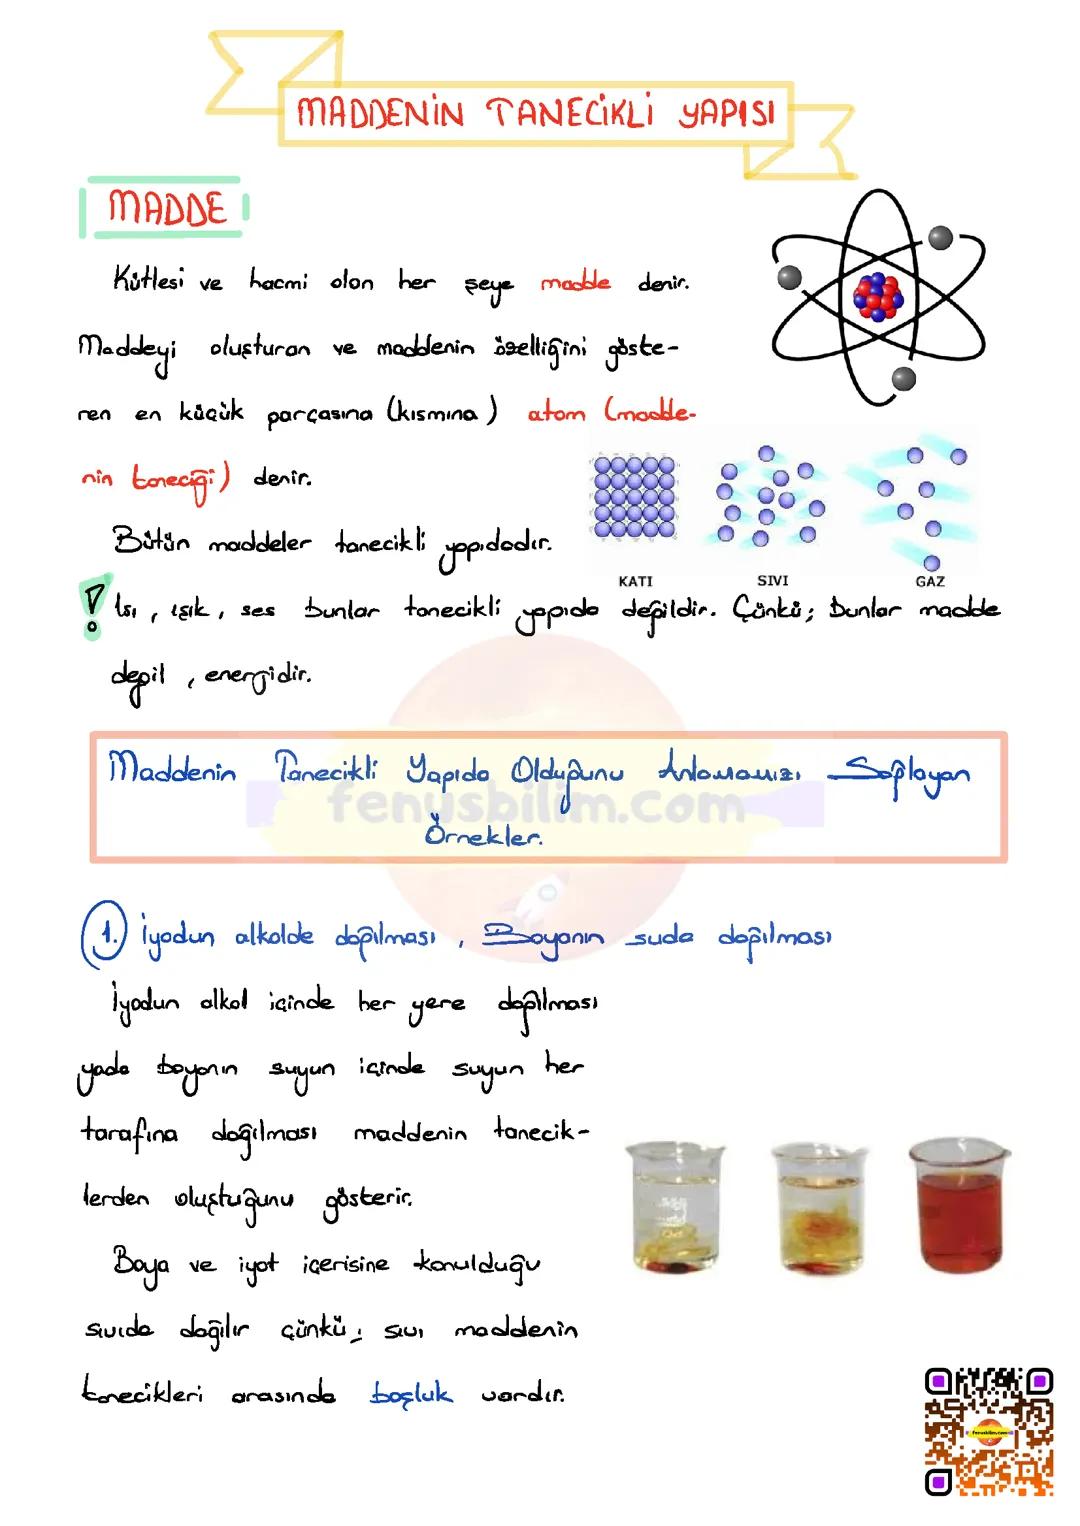 MADDENİN TANECİKLİ YAPISI
MADDE
Kütlesi ve hacmi olan her şeye madde denir.
Maddeyi oluşturan ve maddenin özelliğini göste-
ren en küçük parçasına (kısmına) atom (madde-
nin taneciği) denir.
Bütün maddeler tanecikli yapıdadır.
KATI SIVI GAZ
Isı, ışık, ses bunlar tanecikli yapıda değildir. Çünkü; bunlar madde
değil, enerjidir.
Maddenin Tanecikli Yapıda Olduğunu Anlamamızı Sağlayan
Örnekler.
fenusbilim.com
1. İyodun alkolde dağılması, Boyanın suda dağılması
İyodun alkol içinde her yere dağılması
yada boyanın suyun içinde suyun her
tarafına dağılması maddenin tanecik-
lerden oluştuğunu gösterir.
Boya ve iyot içerisine konulduğu
sıvıda dağılır çünkü; sıvı maddenin
tanecikleri arasında boşluk vardır.
fenusbilim.com